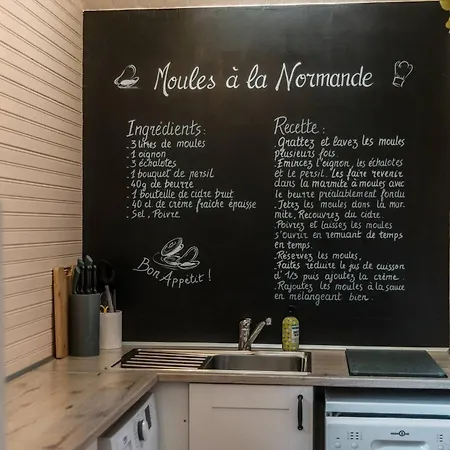 Moules à la Normande
Ingrédients :
. 3 litres de moules
. 1 oignon
. 3 échalotes
. 1 bouquet de persil
. 40g de beurre
. 1 bouteille de cidre brut
. 40 cl de crème fraîche épaisse
. Sel, Poivre
Bon Appétit !
Recette :
. Grattez et lavez les moules
plusieurs fois
. Emincez l'oignon, les échalotes
et le persil. les faire revenir
dans la marmite à moules avec
le beurre préalablement fondu
. Jetez les moules dans la mar
mite, Recouvrez du cidre.
. Poivrez et laissez les moules
s'ouvrir en remuant de temps
en temps.
. Réservez les moules,
. Faites réduire le jus de cuisson
d'1/3 puis ajoutez la crème.
. Rajoutez les moules à la sauce
en mélangeant bien.